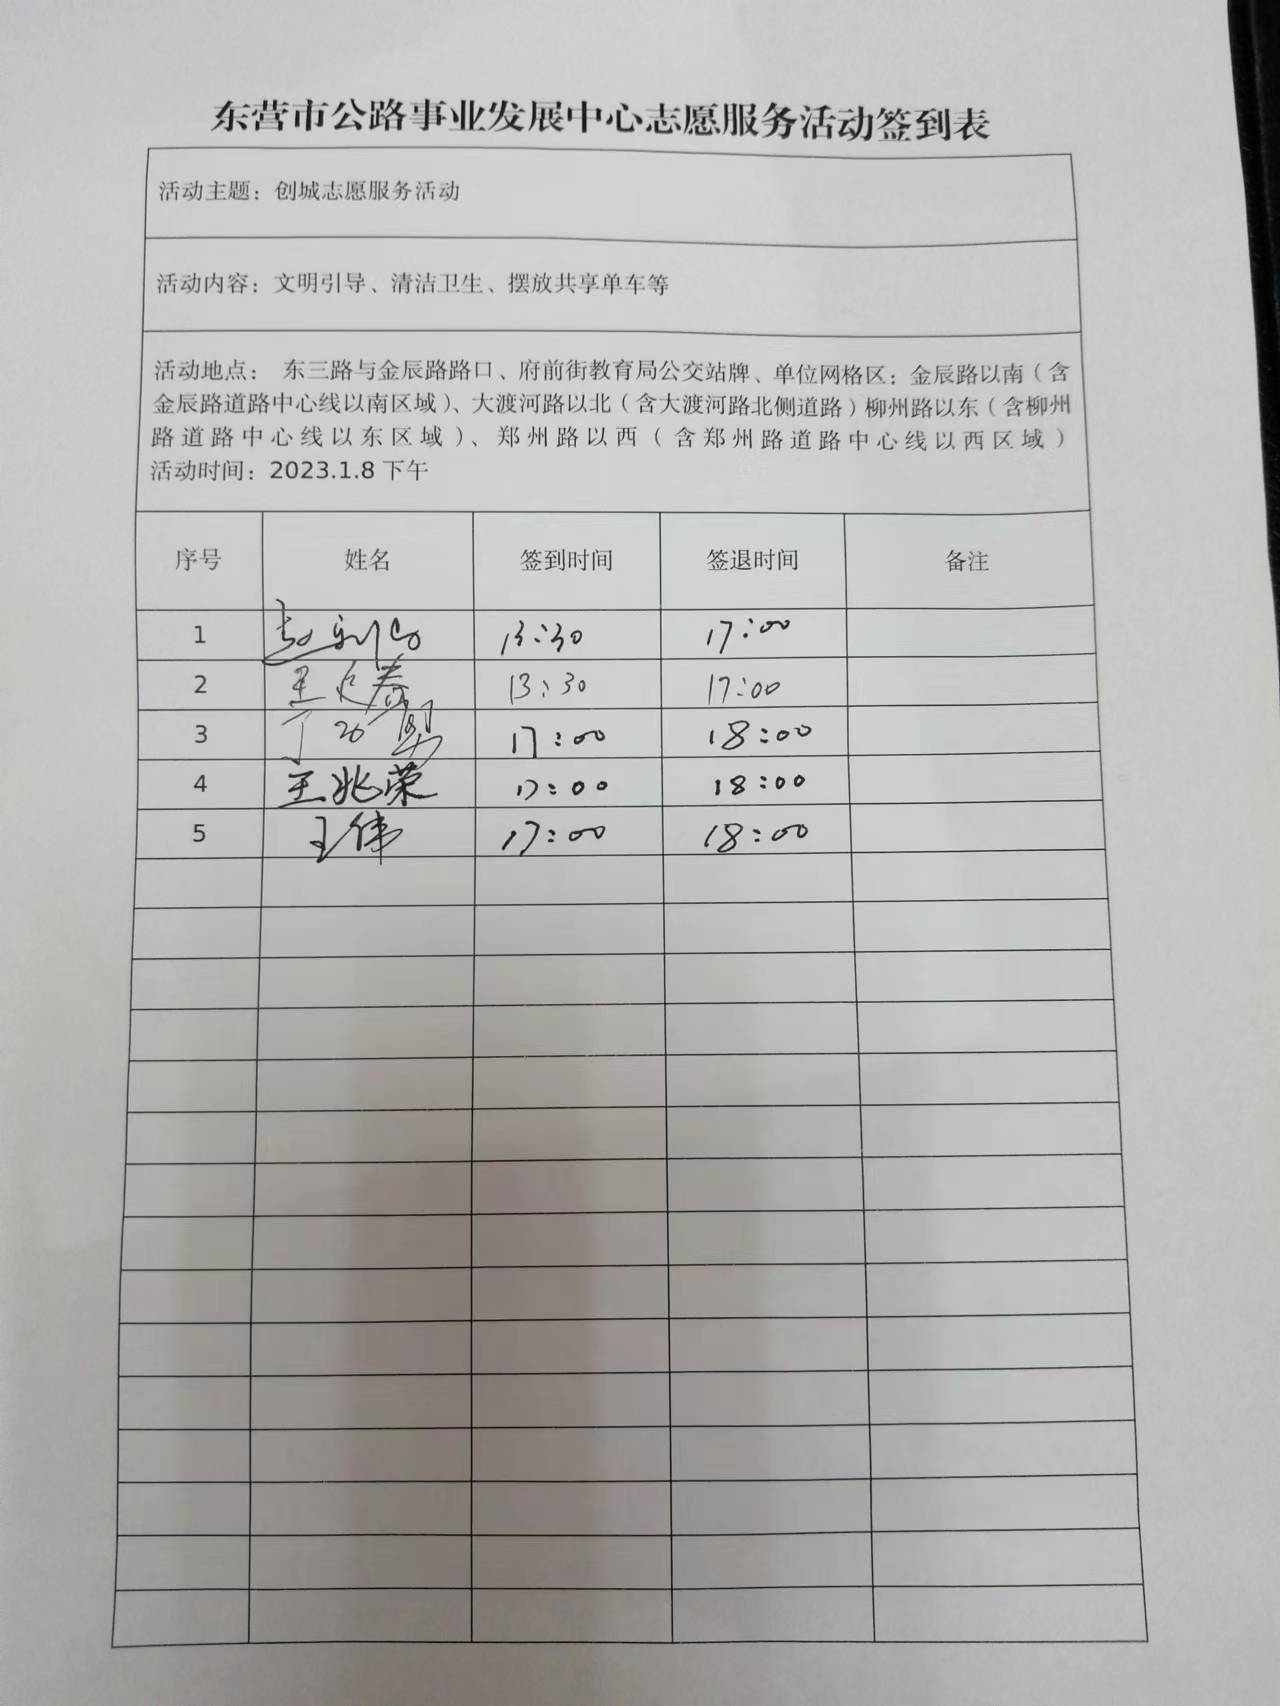 东营市公路事业发展中心志愿服务活动签到表
活动主题：创城志愿服务活动
活动内容：文明引导、清洁卫生、摆放共享单车等
活动地点： 东三路与金辰路路口、府前街教育局公交站牌、单位网格区：金辰路以南（含
金辰路道路中心线以南区域）、大渡河路以北（含大渡河路北侧道路）柳州路以东（含柳州
路道路中心线以东区域）、郑州路以西（含郑州路道路中心线以西区域）
活动时间：2023.1.8 下午
序号 姓名 签到时间 签退时间 备注
1 13:30 17:00
2 13:30 17:00
3 17:00 18:00
4 王兆荣 17:00 18:00
5 王伟 17:00 18:00